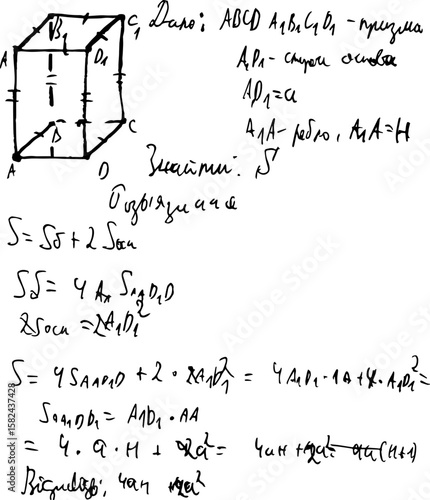 B₁ C₁
A D₁
B C
A D
Дано: ABCD A₁B₁C₁D₁ - призма
A₁D₁ - сторона основи
AD₁ = a
A₁A - ребро, A₁A = H
Знайти: S
Розв'язання
S = Sб + 2Sосн
Sб = 4 S AA₁D₁D
2Sосн = 2A₁D₁²
S = 4S AA₁D₁D + 2 · A₁D₁² = 4A₁D₁ · + · A₁D₁² =
S AA₁DD₁ = A₁D₁ · AA
= 4 · a · H + 2a² = 4aH + 2a² = 4a(H+1)
Відповідь: 4aH 2a²
Adobe Stock | #1582437428
Adobe Stock